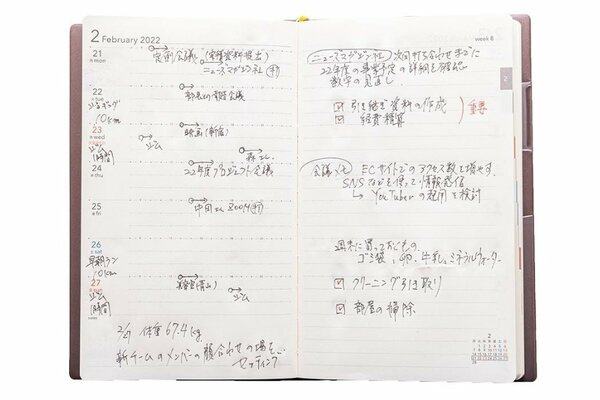 2 February 2022
21
mon
定例会議 (実績資料提出)
ニュースマガジン社 (打)
22
tue
部長と部課会議
ジョギング
10km
23
wed
映画 (新宿)
ジム
ジム
(1時間)
森さん
24
thu
22年度プロジェクト会議
25
fri
中田さん ZOOM (打)
26
sat
早朝ラン
10km
27
sun
美容室 (青山)
ジム
ジム
(1時間)
2/27 体重 67.4kg
新チームのメンバーの顔合わせの場を
セッティング
week 8
2
ニュースマガジン社 次回打ち合わせまでに
22年度の事業予定の詳細を確認
数字の見直し
引き継ぎ資料の作成
経費精算
重要
会議メモ ECサイトでのアクセス数を増やす。
SNSなどを使って情報発信
→ YouTuberの起用を検討
週末に買っておくもの。
ゴミ袋、卵、牛乳、ミネラルウォーター
クリーニング引き取り
部屋の掃除
2